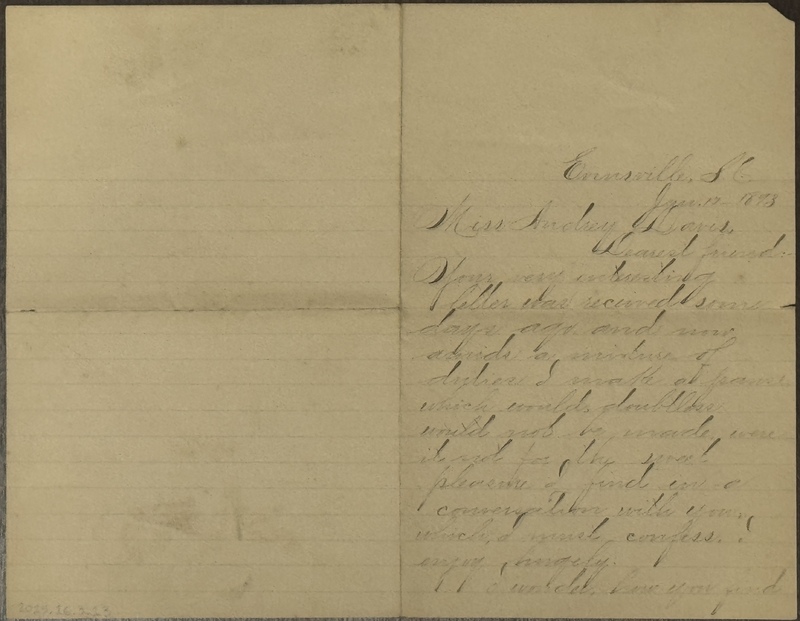 Evinsville, S C
Jan. 12 1893
Miss Audrey Davis,
Dearest friend:-
Your very interesting
letter was received some
days ago and now
amids a mixture of
duties I make a pause
which would doubtless
would not be made, were
it not for the great
pleasure I find in a
conversation with you,
which I must confess. I
enjoy hugely.
I wonder how you find